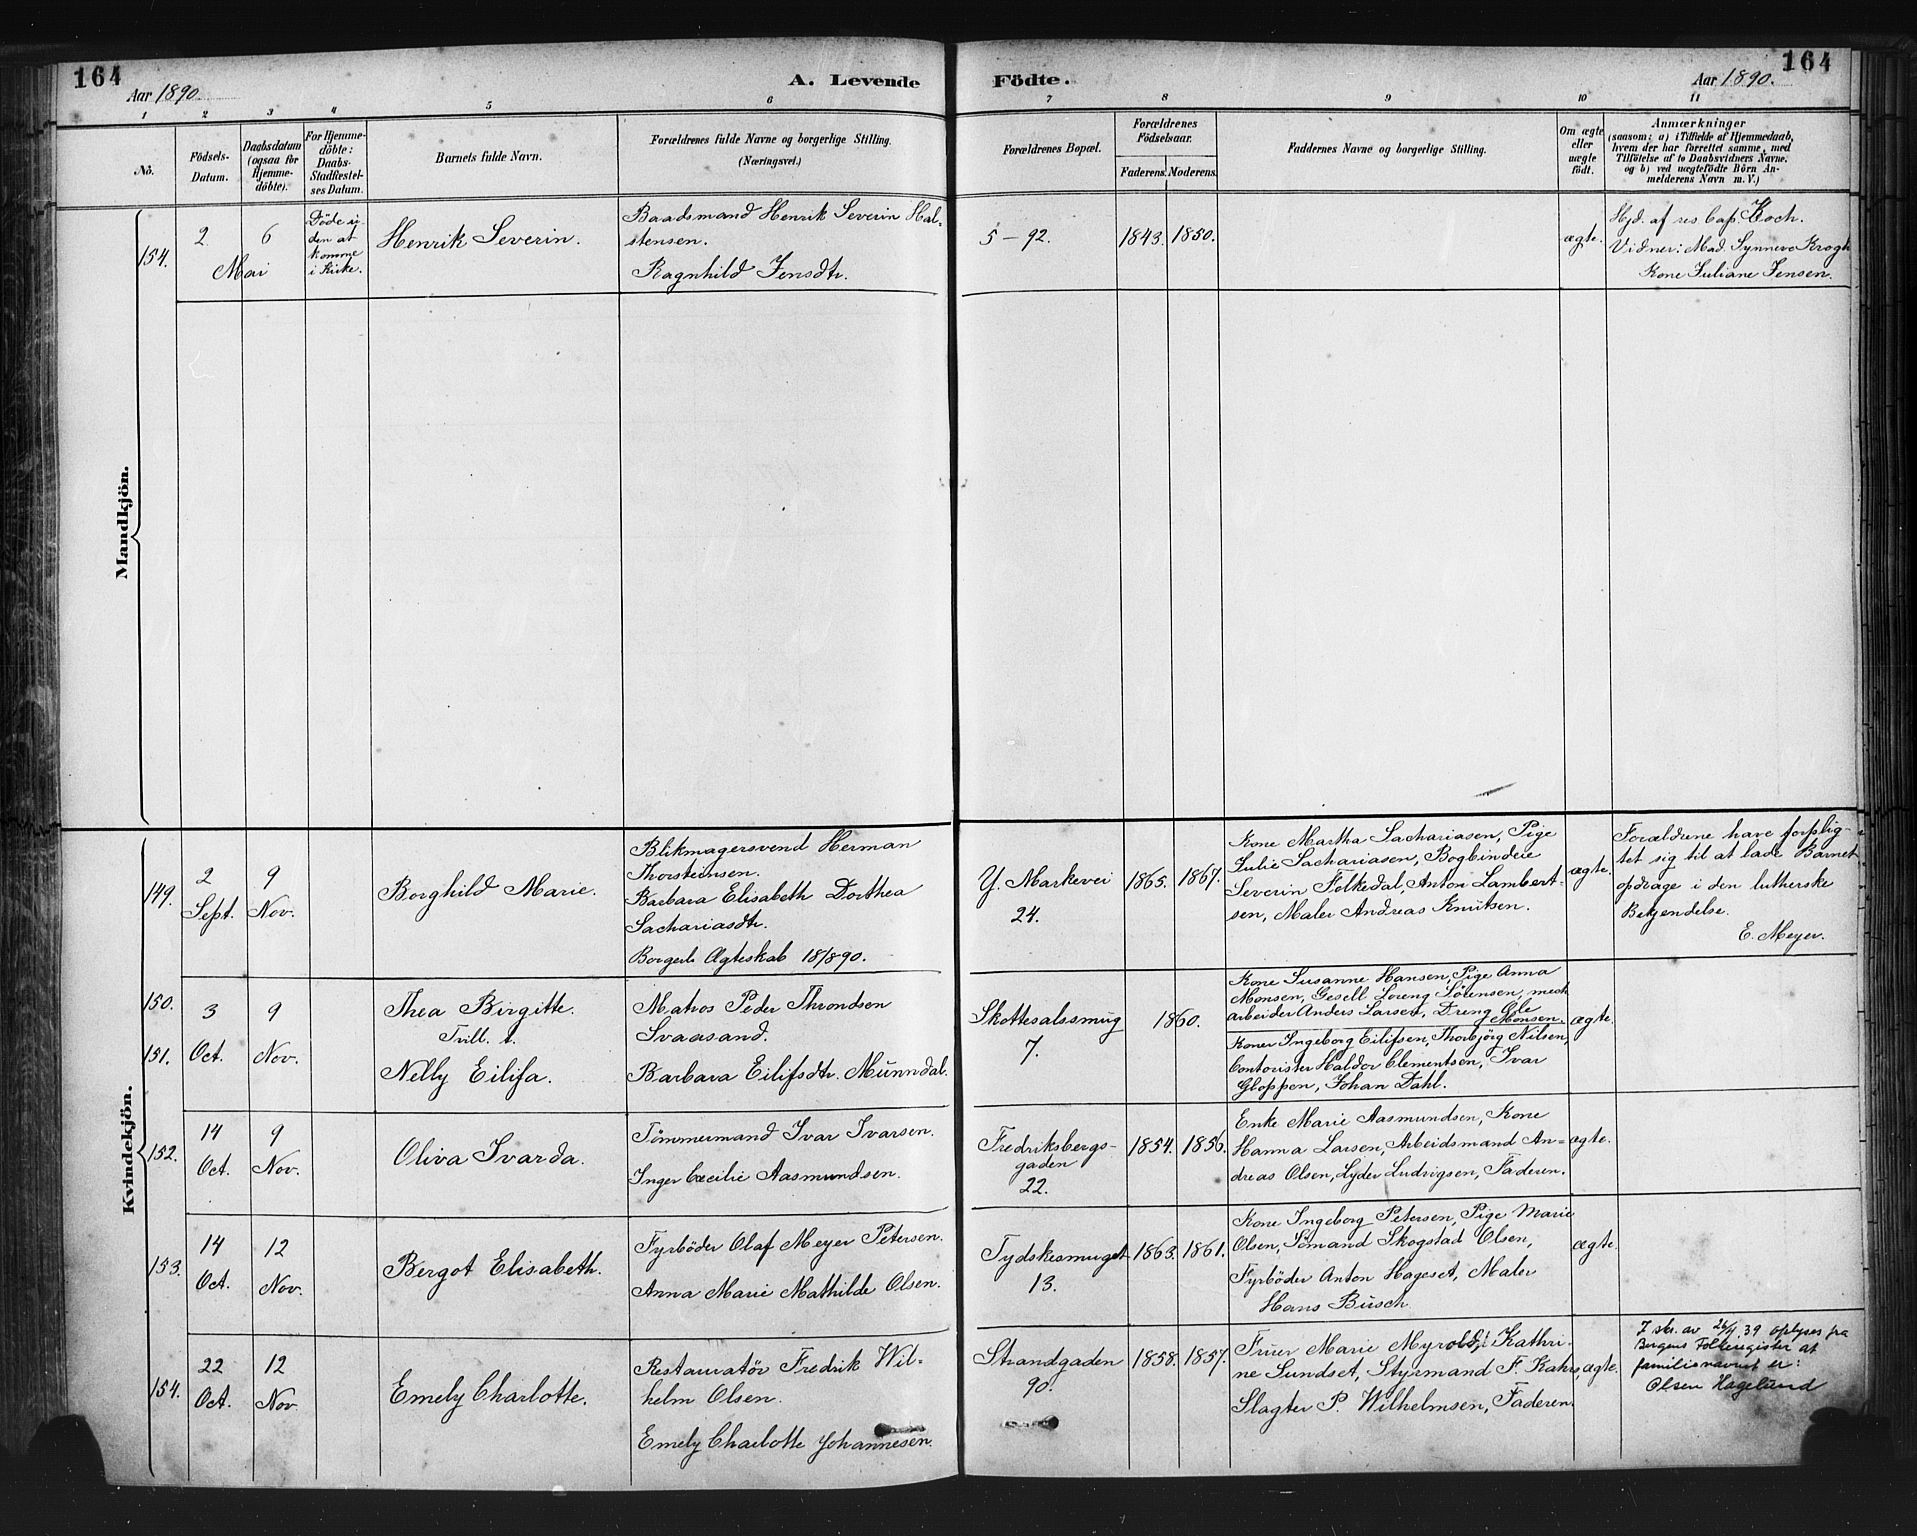 164
Aar 1890.
A. Levende
Födte.
Aar 1890.
164
1 2 3 4 5 6 7 8 9 10 11
No.
Födsels-
Datum.
Daabsdatum
(ogsaa for
Hjemme-
döbte).
For Hjemme-
döbte:
Daabs-
Stadfestel-
ses Datum.
Barnets fulde Navn.
Forældrenes fulde Navne og borgerlige Stilling.
(Næringsvei.)
Forældrenes Bopæl.
Forældrenes
Födselsaar.
Faderens. Moderens.
Faddernes Navne og borgerlige Stilling.
Om ægte
eller
uægte
födt.
Anmærkninger
(saasom: a) i Tilfælde af Hjemmedaab,
hvem der har forrettet samme, med
Tilföielse af to Daabsvidners Navne.
og b) ved uægtefödte Börn An-
melderens Navn m. V.)
Mandkjön.
154.
2 6
Mai
Döde u-
den at
komme
i Kirke.
Henrik Severin.
Baadsmand Henrik Severin Hal-
stensen.
Ragnhild Jensdtr.
5 - 92.
1843. 1850.
ægte.
Hjd. af res Cap. Koch.
Vidner: Mad. Synneva Krogh
Kone Juliane Jensen.
Kvindekjön.
149.
2
Sept.
9
Nov.
Borghild Marie.
Blikmagersvend Herman
Thorsteinsen.
Barbara Elisabeth Dorthea
Sachariasdtr.
Borgerl. Ægteskab 18/8 90.
Y. Markevei
24.
1865. 1867.
Kone Martha Sachariasen, Pige
Julie Sachariasen, Bogbindere
Severin Folkedal, Anton Lambert-
sen, Maler Andreas Knutsen.
ægte.
Forældrene have forplig-
tet sig til at lade Barnet
opdrage i den lutherske
Bekjendelse.
E. Meyer.
150.
151.
3
Oct.
9
Nov.
Thea Birgitte.
Tvill. t.
Nelly Eilifa.
Matros Peder Throndsen
Svaasand.
Barbara Eilifsdtr. Munndal.
Skottesalssmug
7.
1860.
Kone Susanne Hansen, Pige Anna
Monsen, Gesell Loreng Sörensen, mech
arbeider Anders Larsen, Dreng Ole
Monsen
Koner Ingeborg Eilifsen, Thorbjörg Nilsen,
Contorister Haldor Clementsen, Ivar
Gloppen, Johan Dahl.
ægte.
152.
14
Oct.
9
Nov.
Oliva Ivarda.
Tömmermand Ivar Ivarsen.
Inger Cæcilie Aasmundsen.
Fredriksbergs-
gaden
22.
1854. 1856.
Enke Marie Aasmundsen, Kone
Hanna Larsen, Arbeidsmand An-
dreas Olsen, Lyder Ludvigsen, Faderen.
ægte.
153.
14
Oct.
12
Nov.
Bergot Elisabeth.
Fyrböder Olaf Meyer Petersen.
Anna Marie Mathilde Olsen.
Tydskesmuget
13.
1863. 1861.
Kone Ingeborg Petersen, Pige Marie
Olsen, Sömand Skogstad Olsen,
Fyrböder Anton Hageset, Maler
Hans Busch
ægte.
154.
22
Oct.
12
Nov.
Emely Charlotte.
Restauratör Fredrik Wil-
helm Olsen.
Emely Charlotte Johannesen.
Strandgaden
90.
1858. 1857.
Fruer Marie Myrold, Kathri-
ne Sundset, Styrmand F. Kahrs,
Slagter P. Wilhelmsen, Faderen.
ægte.
I skr. av 39 oplyses fra
Bergens Folkeregister at
familienavnet er:
Olsen Hagelund